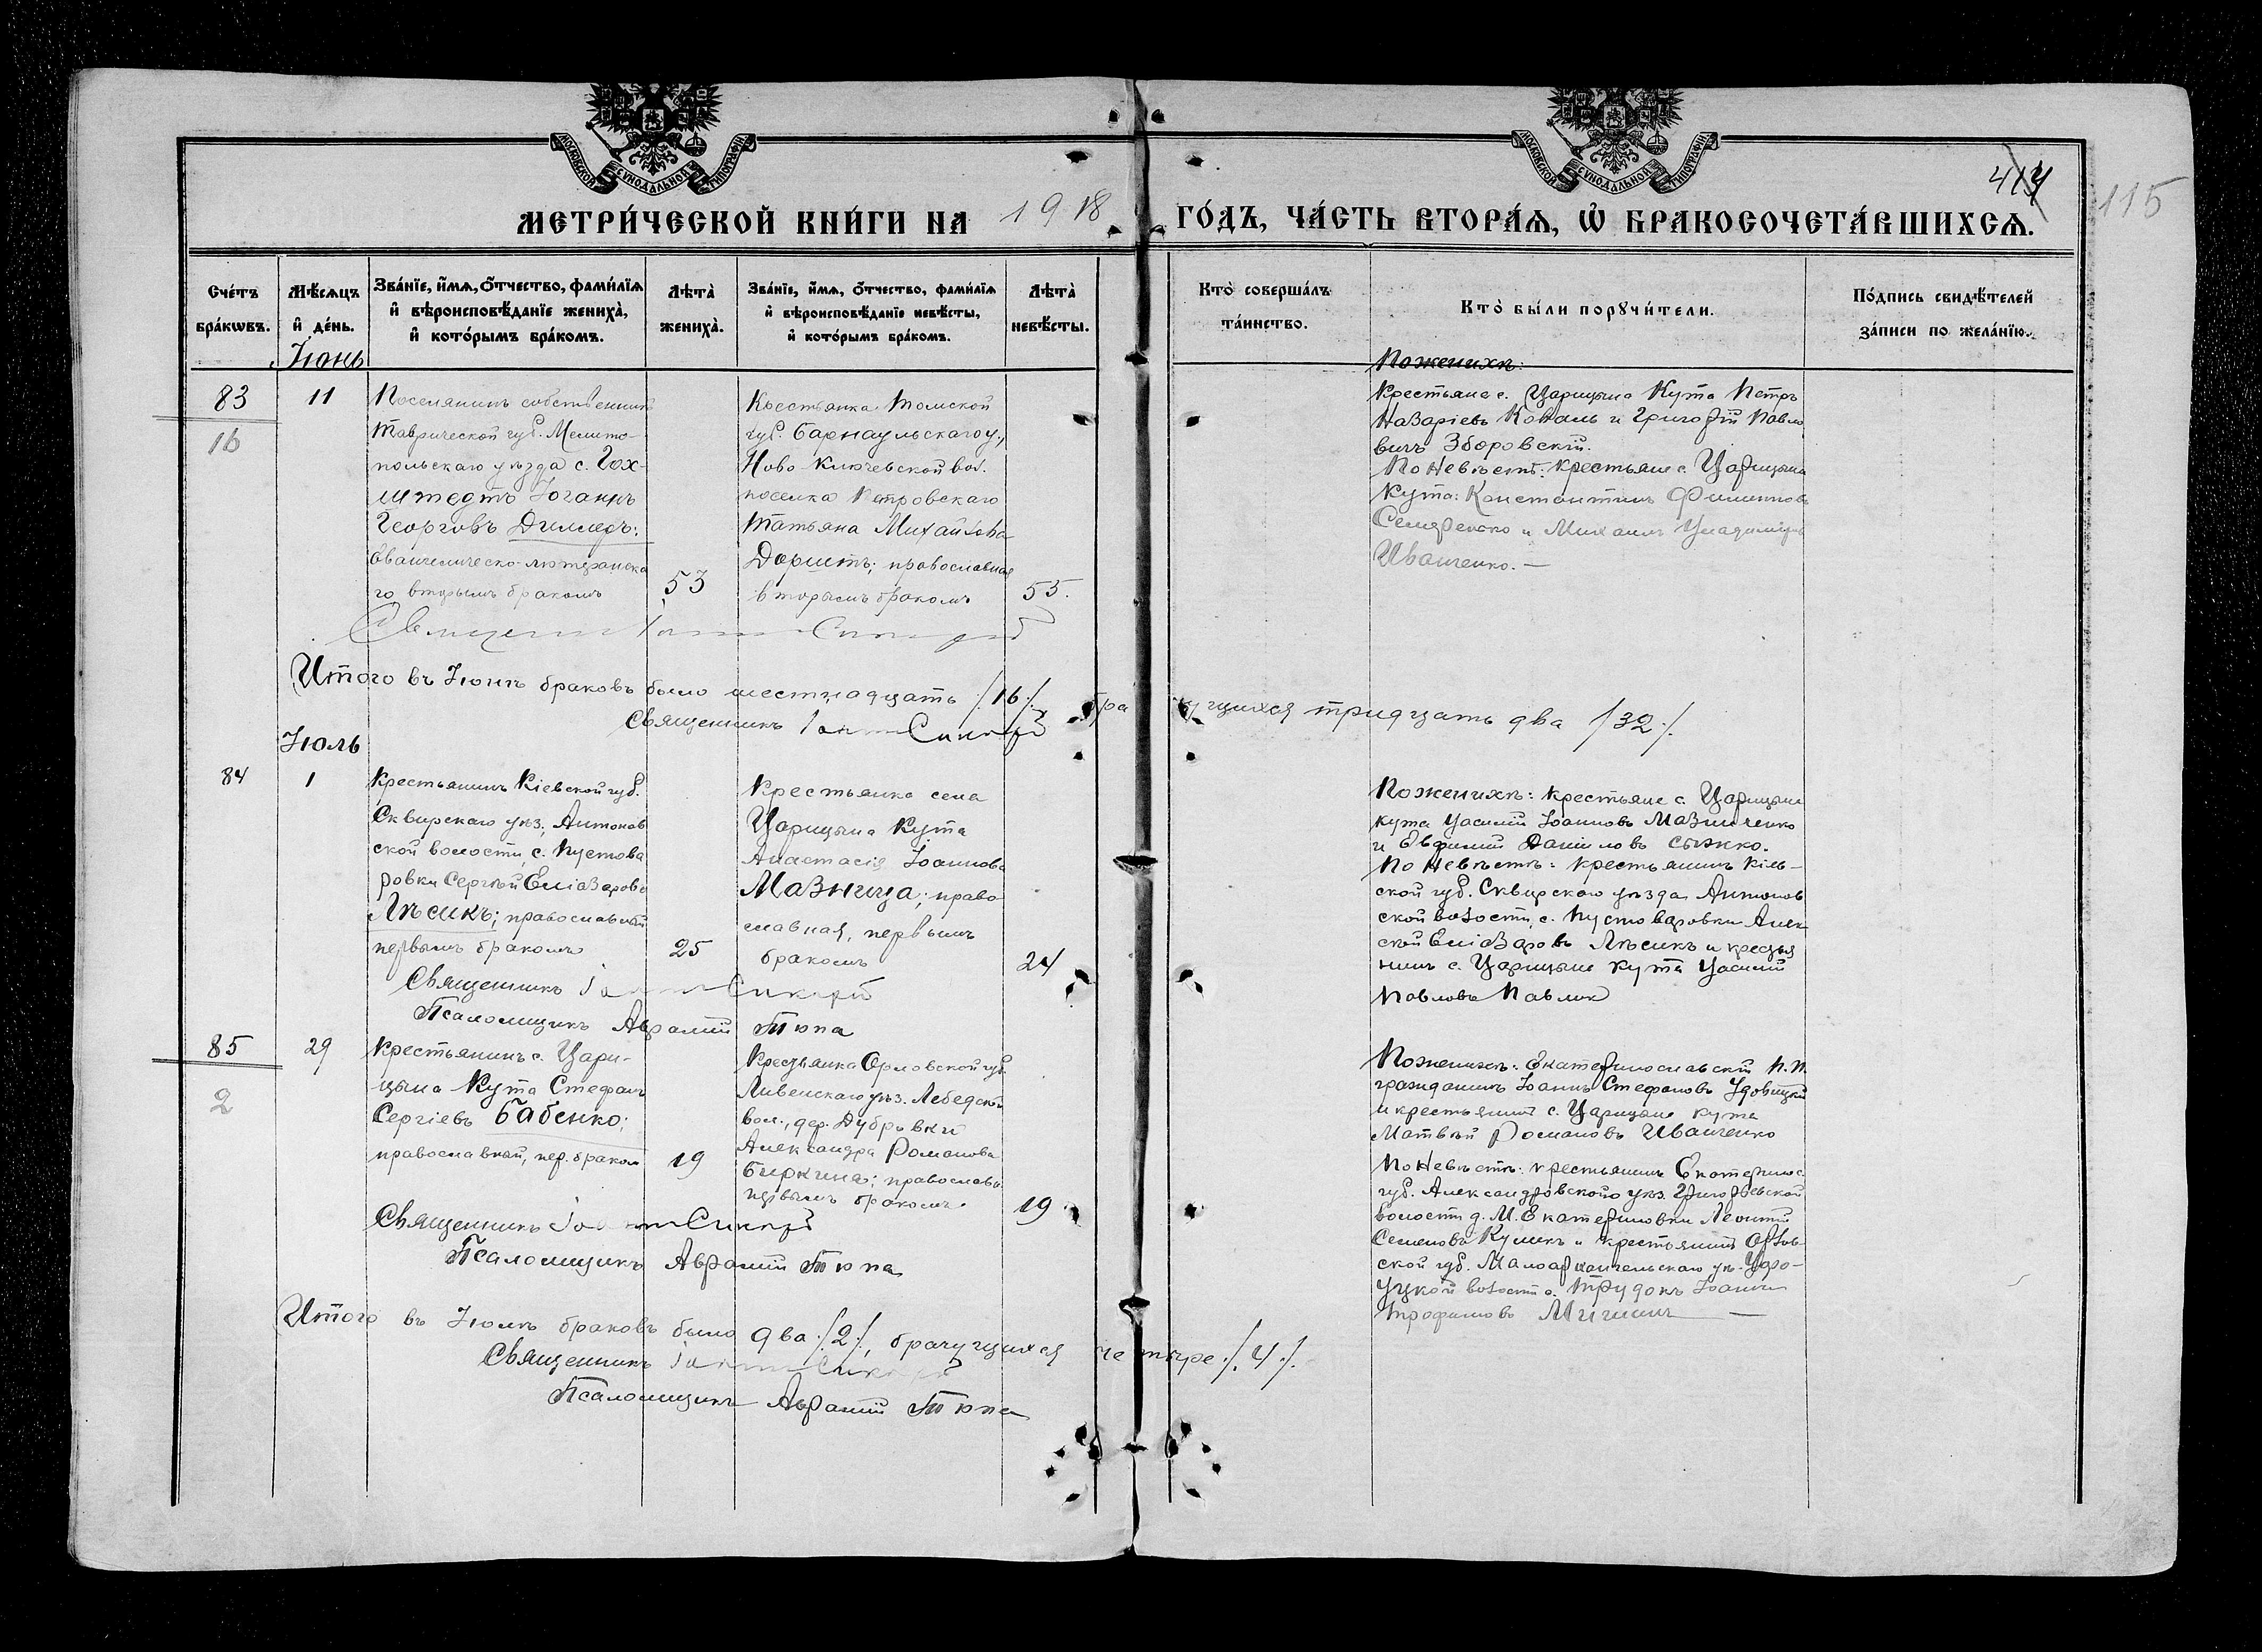 МОСКОВСКОЙ СУНОДАЛЬНОЙ ТИПОГРАФІИ
МОСКОВСКОЙ СУНОДАЛЬНОЙ ТИПОГРАФІИ
414
115
МЕТРИ́ЧЕСКОЙ КНИ́ГИ НА 1918 ГО́ДЪ, ЧА́СТЬ ВТОРА́Я, Ѡ҆ БРАКОСОЧЕТА́ВШИХСЯ.
Сче́тъ бра́кѡвъ.
Мѣ́сяцъ и҆ де́нь.
Зва́нїе, и҆́мя, ѻ҆́тчество, фами́лїя и҆ вѣроисповѣ́данїе жениха̀, и҆ кото́рымъ бра́комъ.
Лѣта̀ жениха̀.
Зва́нїе, и҆́мя, ѻ҆́тчество, фами́лїя и҆ вѣроисповѣ́данїе невѣ́сты, и҆ кото́рымъ бра́комъ.
Лѣта̀ невѣ́сты.
Кто̀ соверша́лъ та́инство.
Кто̀ бы́ли порꙋчи́тели.
По́дпись свидѣ́телей за́писи по жела́нїю.
Іюнь
83
16
11
Поселянинъ собственникъ
Таврической губ. Мелито-
польскаго уѣзда с. Гох-
штедтъ Іоганнъ
Георговъ Диллеръ:
Евангелическо-лютеранска
го вторымъ бракомъ
53
Крестьянка Томской
губ. Барнаульскаго у.,
Ново-Ключевской вол.
поселка Петровскаго
Татьяна Михайлова
Доришъ; православная
вторымъ бракомъ
55.
По женихѣ:
Крестьяне с. Царицына Кута Петръ
Назаріевъ Коваль и Григорій Павло
вичъ Зборовскій.
По невѣстѣ: крестьяне с. Царицына
Кута: Константинъ
и Михаилъ
Иванченко. —
Священникъ
Итого въ Іюнѣ браковъ было шестнадцать /.16./, бра чущихся тридцать два /32./.
Священникъ
Іюль
84
1
Крестьянинъ Кіевской губ.
Сквирскаго уѣз., Антонов
ской волости, с. Пустова
ровки Сергѣй Еліазаровъ
Лѣсикъ; православный
первымъ бракомъ
25
Крестьянка села
Царицына Кута
Анастасія Іоаннова
Мазница; право
славная, первымъ
бракомъ
24
По женихѣ: крестьяне с. Царицына
Кута Василій Іоанновъ Мазниченко
и Евфимій Даніиловъ
По невѣстѣ: крестьянинъ Кіев-
ской губ. Сквирскаго уѣзда Антонов
ской волости, с. Пустоваровки Алек
сѣй Еліазаровъ Лѣсикъ и крестья
нинъ с. Царицына Кута Василій
Павловъ Павлик
Священникъ
Псаломщикъ Аврамій Тюпа
85
2
29
Крестьянинъ с. Цари-
цына Кута Стефанъ
Сергіевъ Бабенко;
православный, пер. браком
19
Крестьянка Орловской губ.
Ливенскаго уѣз. Лебедской
вол., дер. Дубровки
Александра Романова
Биркина; православн.
первымъ бракомъ.
19
По женихѣ: Екатеринославскій П. П.
гражданинъ Іоаннъ Стефановъ Удовицкій
и крестьянинъ с. Царицына Кута
Матвѣй Романовъ Иванченко
По невѣстѣ: крестьянинъ Екатеринос.
губ. Александровскаго уѣз. Григорьевской
волости д. М. Екатериновки Леонтій
Семеновъ Куликъ и крестьянинъ Орлов-
ской губ. Малоархангельскаго уѣ.
волости с. Трудокъ Іоаннъ
Трофимовъ —
Священникъ
Псаломщикъ Аврамій Тюпа
Итого въ Іюлѣ браковъ было два /.2./, брачущихся четыре /.4./.
Священникъ
Псаломщикъ Аврамій Тюпа